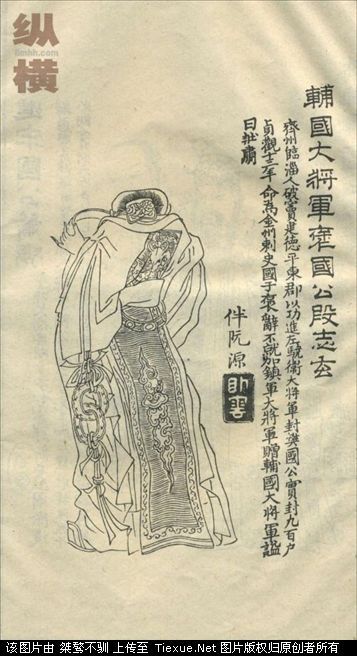 纵横
輔國大將軍褒國公段志玄
齊州臨淄人破竇建德平東都以功進左驍衛大將軍封樊國公實封九百户
貞觀十一年命為金州刺史國于褒辭不就加鎮軍大將軍贈輔國大將軍謚
曰壯肅
伴阮源
该图片由 桀骜不驯 上传至 Tiexue.Net 图片版权归原创者所有